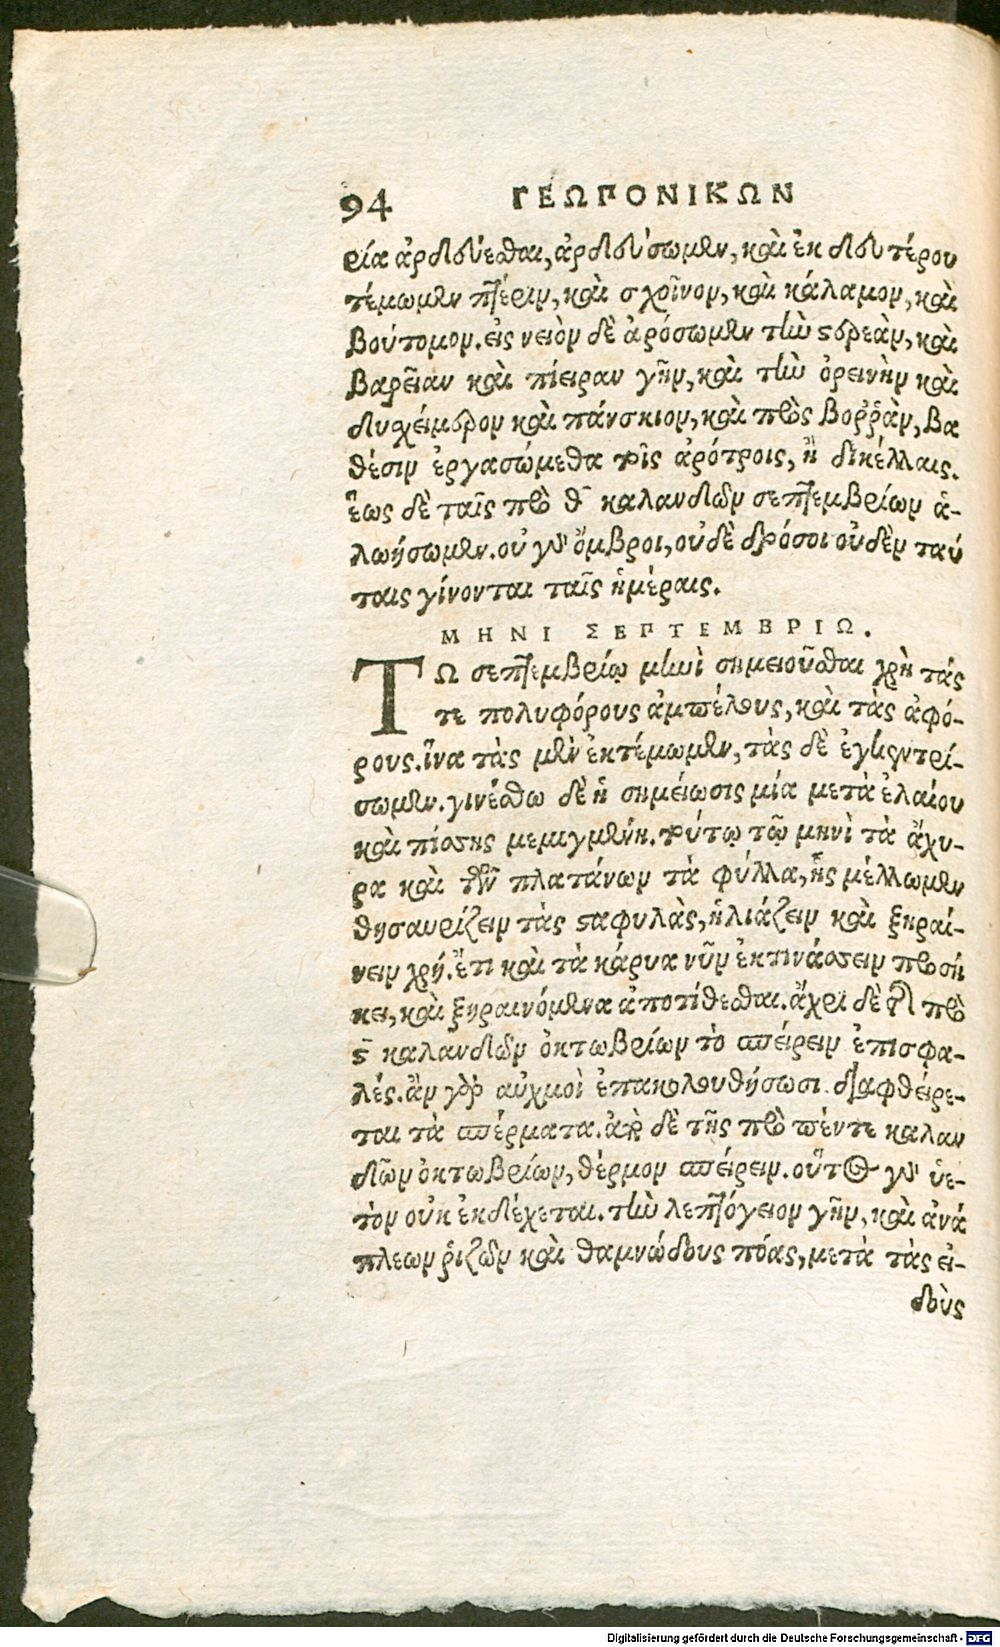 94 ΓΕΩΠΟΝΙΚΩΝ
ρία ἀρδεύεσθαι, ἀρδεύσωμεν, καὶ ἐκ δευτέρου
τέμωμεν πτέριν, καὶ σχοῖνον, καὶ κάλαμον, καὶ
βούτομον. εἰς νειὸν δὲ ἀρόσωμεν τὴν στερεὰν, καὶ
βαρεῖαν καὶ πίειραν γῆν, καὶ τὴν ὀρεινὴν καὶ
δυχείμερον καὶ πάνσκιον, καὶ πρὸς βοῤῥὰν, βα
θέσιν ἐργασώμεθα τοῖς ἀρότροις, ἢ δικέλλαις.
ἕως δὲ ταῖς πρὸ θ̄ καλανδῶν σεπτεμβρίων ἁ-
λωήσωμεν. οὐ γὰρ ὄμβροι, οὐδὲ δρόσοι οὐδὲν ταύ
ταις γίνονται ταῖς ἡμέραις.
ΜΗΝΙ ΣΕΠΤΕΜΒΡΙΩ.
ΤΩ σεπτεμβρίῳ μηνὶ σημειοῦσθαι χρὴ τάς
τε πολυφόρους ἀμπέλους, καὶ τὰς ἀφό-
ρους. ἵνα τὰς μὲν ἐκτέμωμεν, τὰς δὲ ἐγκεντρί-
σωμεν. γινέσθω δὲ ἡ σημείωσις μία μετὰ ἐλαίου
καὶ πίσσης μεμιγμένη. τούτῳ τῷ μηνὶ τὰ ἄχυ-
ρα καὶ τῶν πλατάνων τὰ φύλλα, ἧς μέλλωμεν
θησαυρίζειν τὰς σταφυλὰς, ἡλιάζειν καὶ ξηραί-
νειν χρή. ἔτι καὶ τὰ κάρυα νῦν ἐκτινάσσειν προσή
κει, καὶ ξηραινόμενα ἀποτίθεσθαι. ἄχρι δὲ τῆς πρὸ
ϛ̄ καλανδῶν ὀκτωβρίων τὸ σπείρειν ἐπισφα-
λές. ἂν γὰρ αὐχμοὶ ἐπακολουθήσωσι διαφθείρε-
ται τὰ σπέρματα. ἀπὸ δὲ τῆς πρὸ πέντε καλαν
δῶν ὀκτωβρίων, θέρμον σπείρειν. οὗτος γὰρ ὑε-
τὸν οὐκ ἐκδέχεται. τὴν λεπτόγειον γῆν, καὶ ἀνά
πλεων ῥιζῶν καὶ θαμνώδους πόας, μετὰ τὰς εἰ-
δοὺς
Digitalisierung gefördert durch die Deutsche Forschungsgemeinschaft - DFG